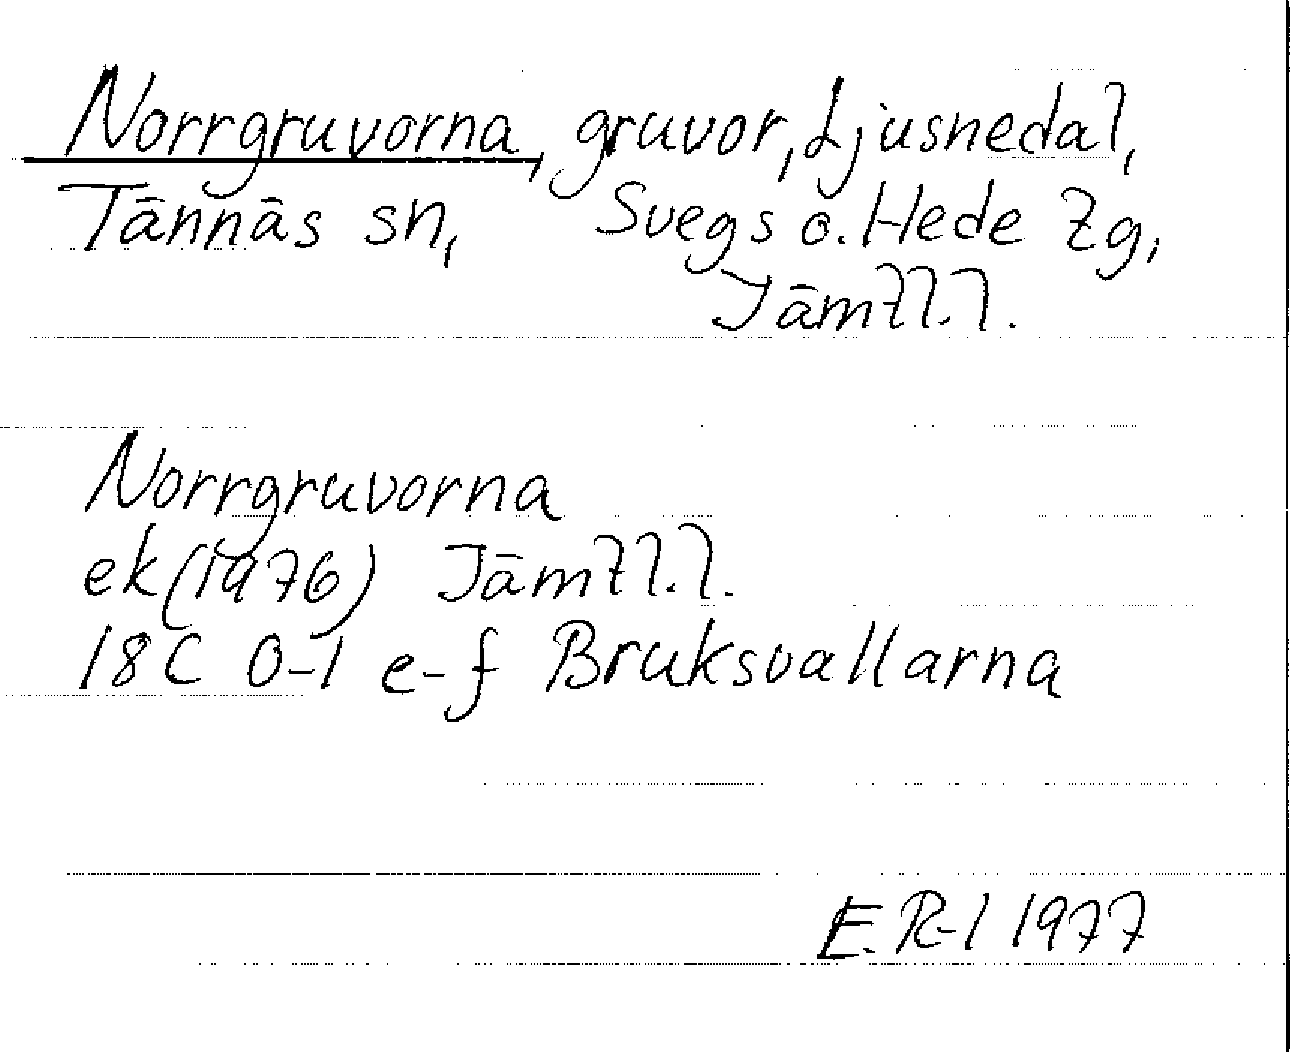 Norrgruvorna, gruvor, Ljusnedal,
Tännäs sn, Svegs o. Hede tg,
Jämtl.l.
Norrgruvorna
ek(1976) Jämtl.l.
18C 0-1 e-f Bruksvallarna
E.R-l 1977